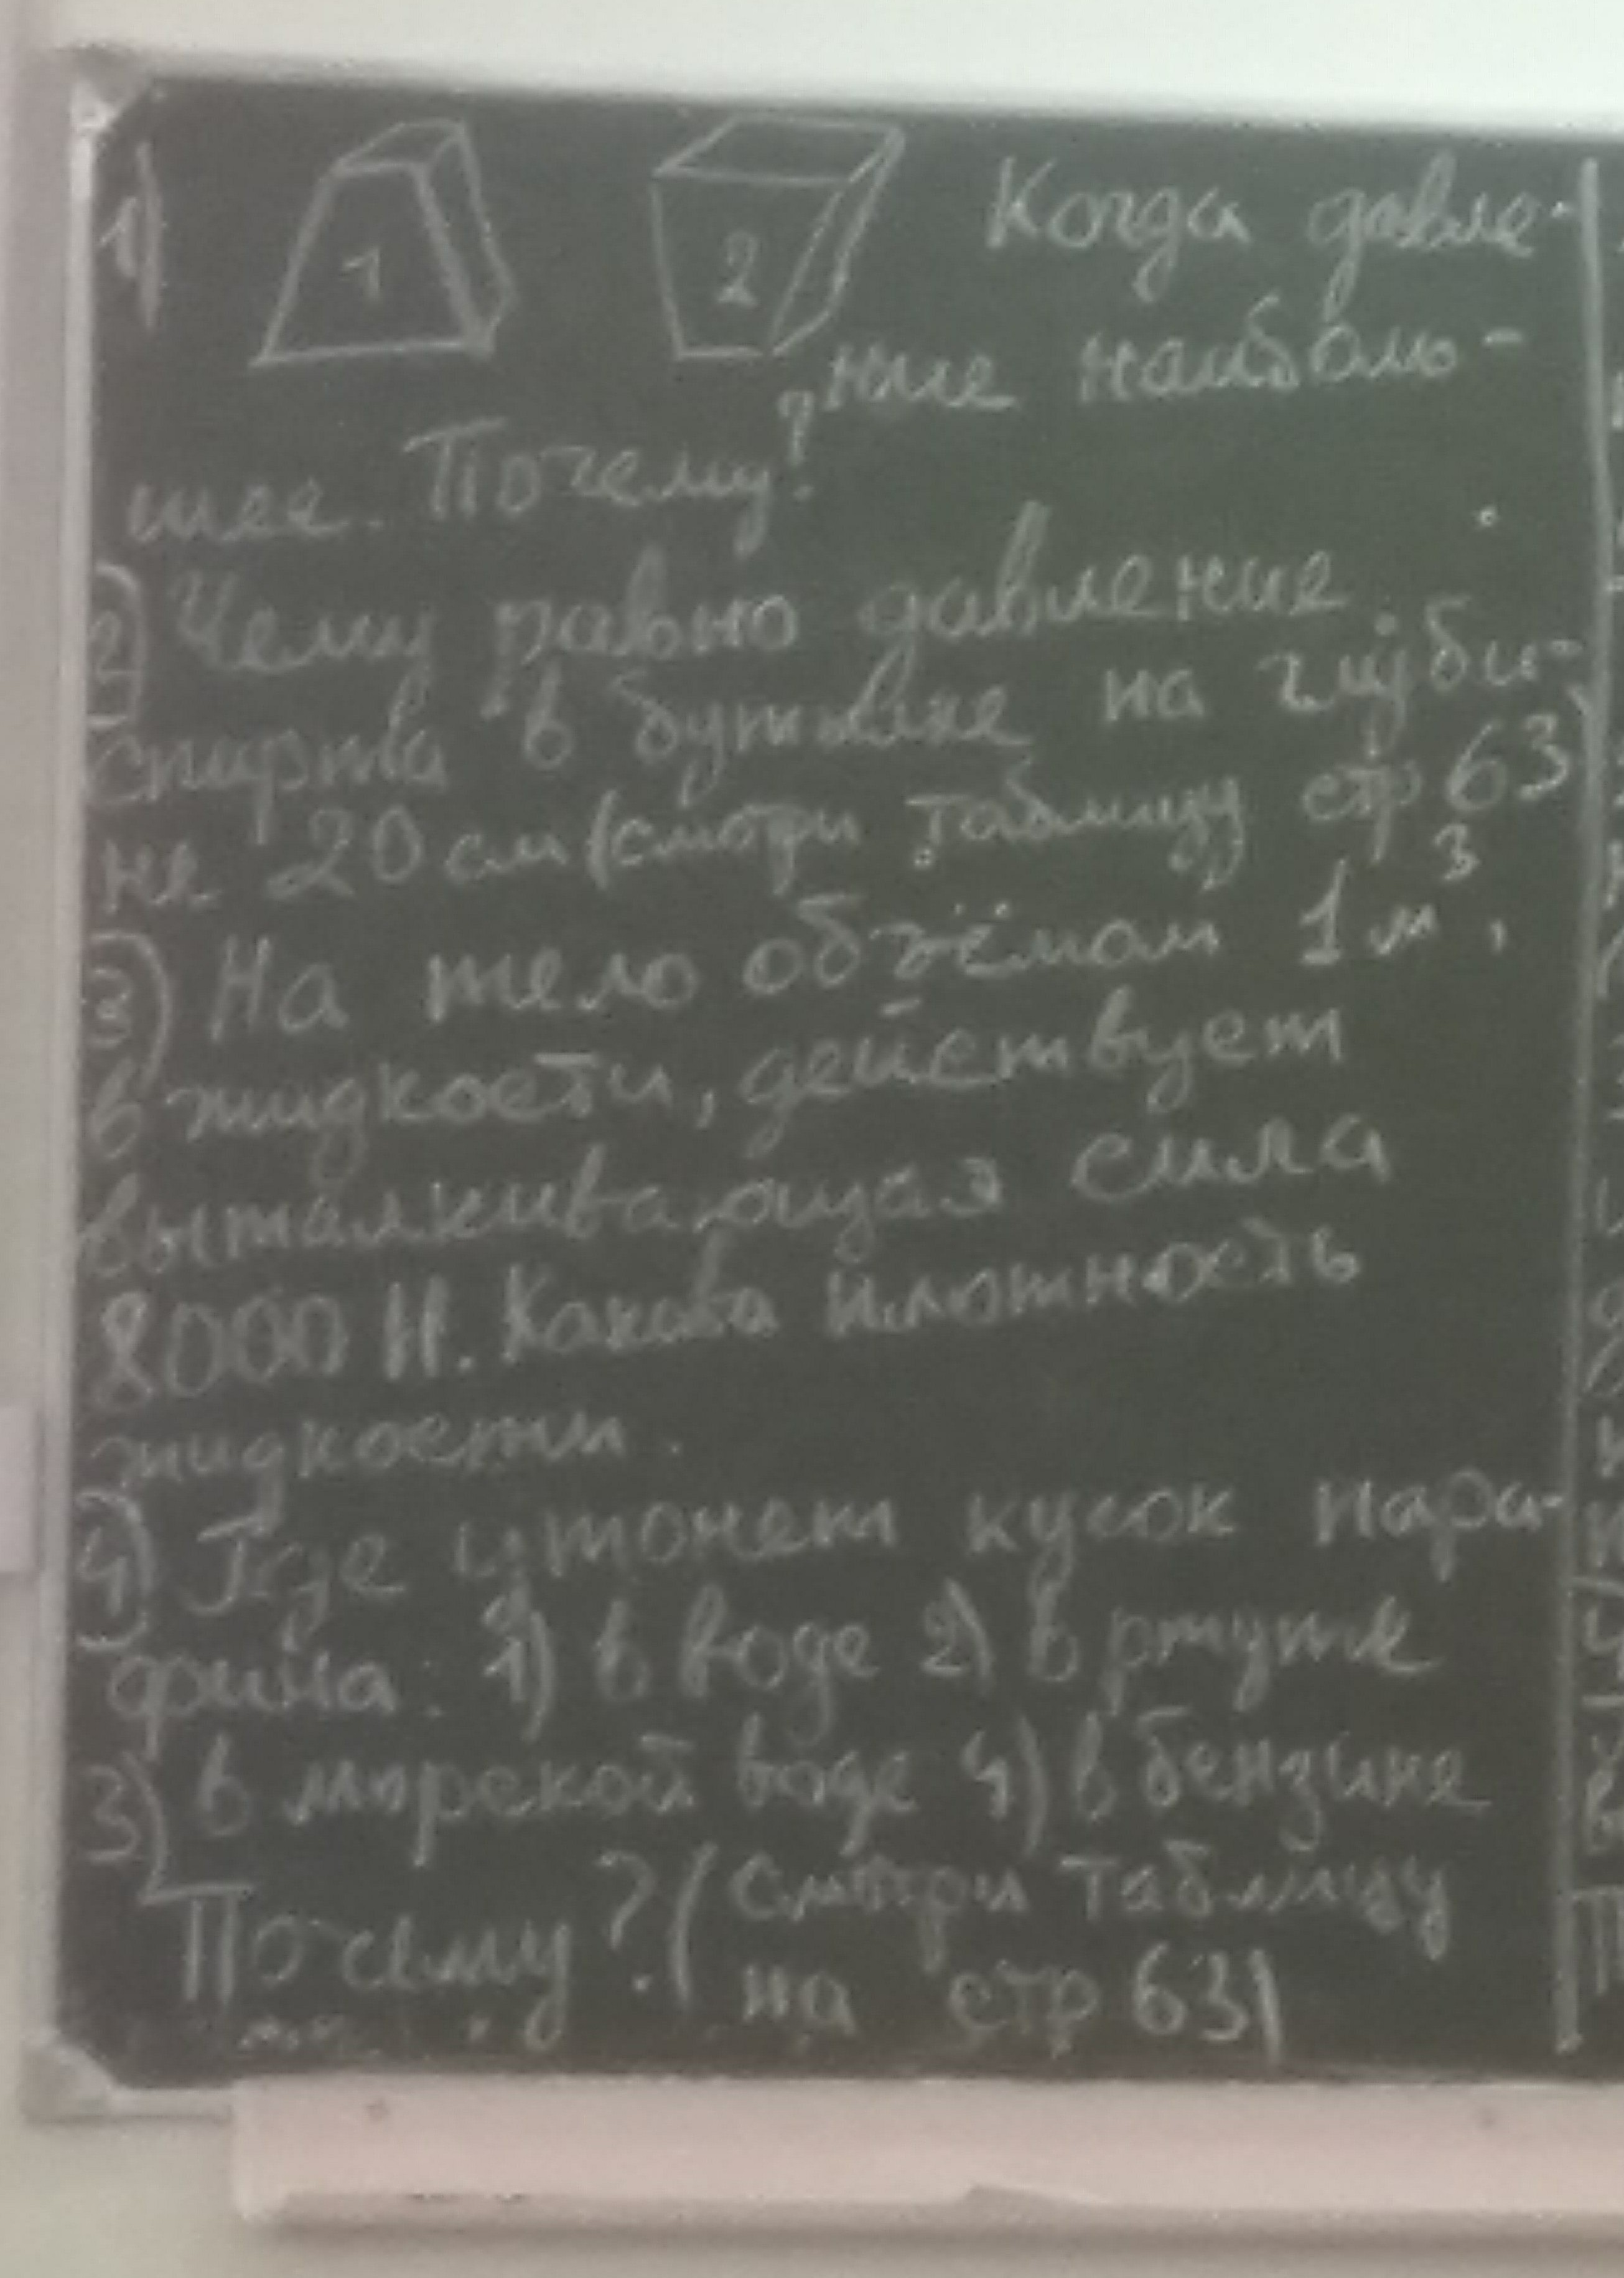 1) 1 2 Когда давле-
ние наиболь-
шее. Почему?
2) Чему равно давление
спирта в бутылке на глуби-
не 20 см (смотри таблицу стр 63
3) На тело объёмом 1 м³,
в жидкости, действует
выталкивающая сила
8000 Н. Какова плотность
жидкости.
4) Где утонет кусок пара-
фина: 1) в воде 2) в ртути
3) в морской воде 4) в бензине
Почему? (смотри таблицу
на стр 63)